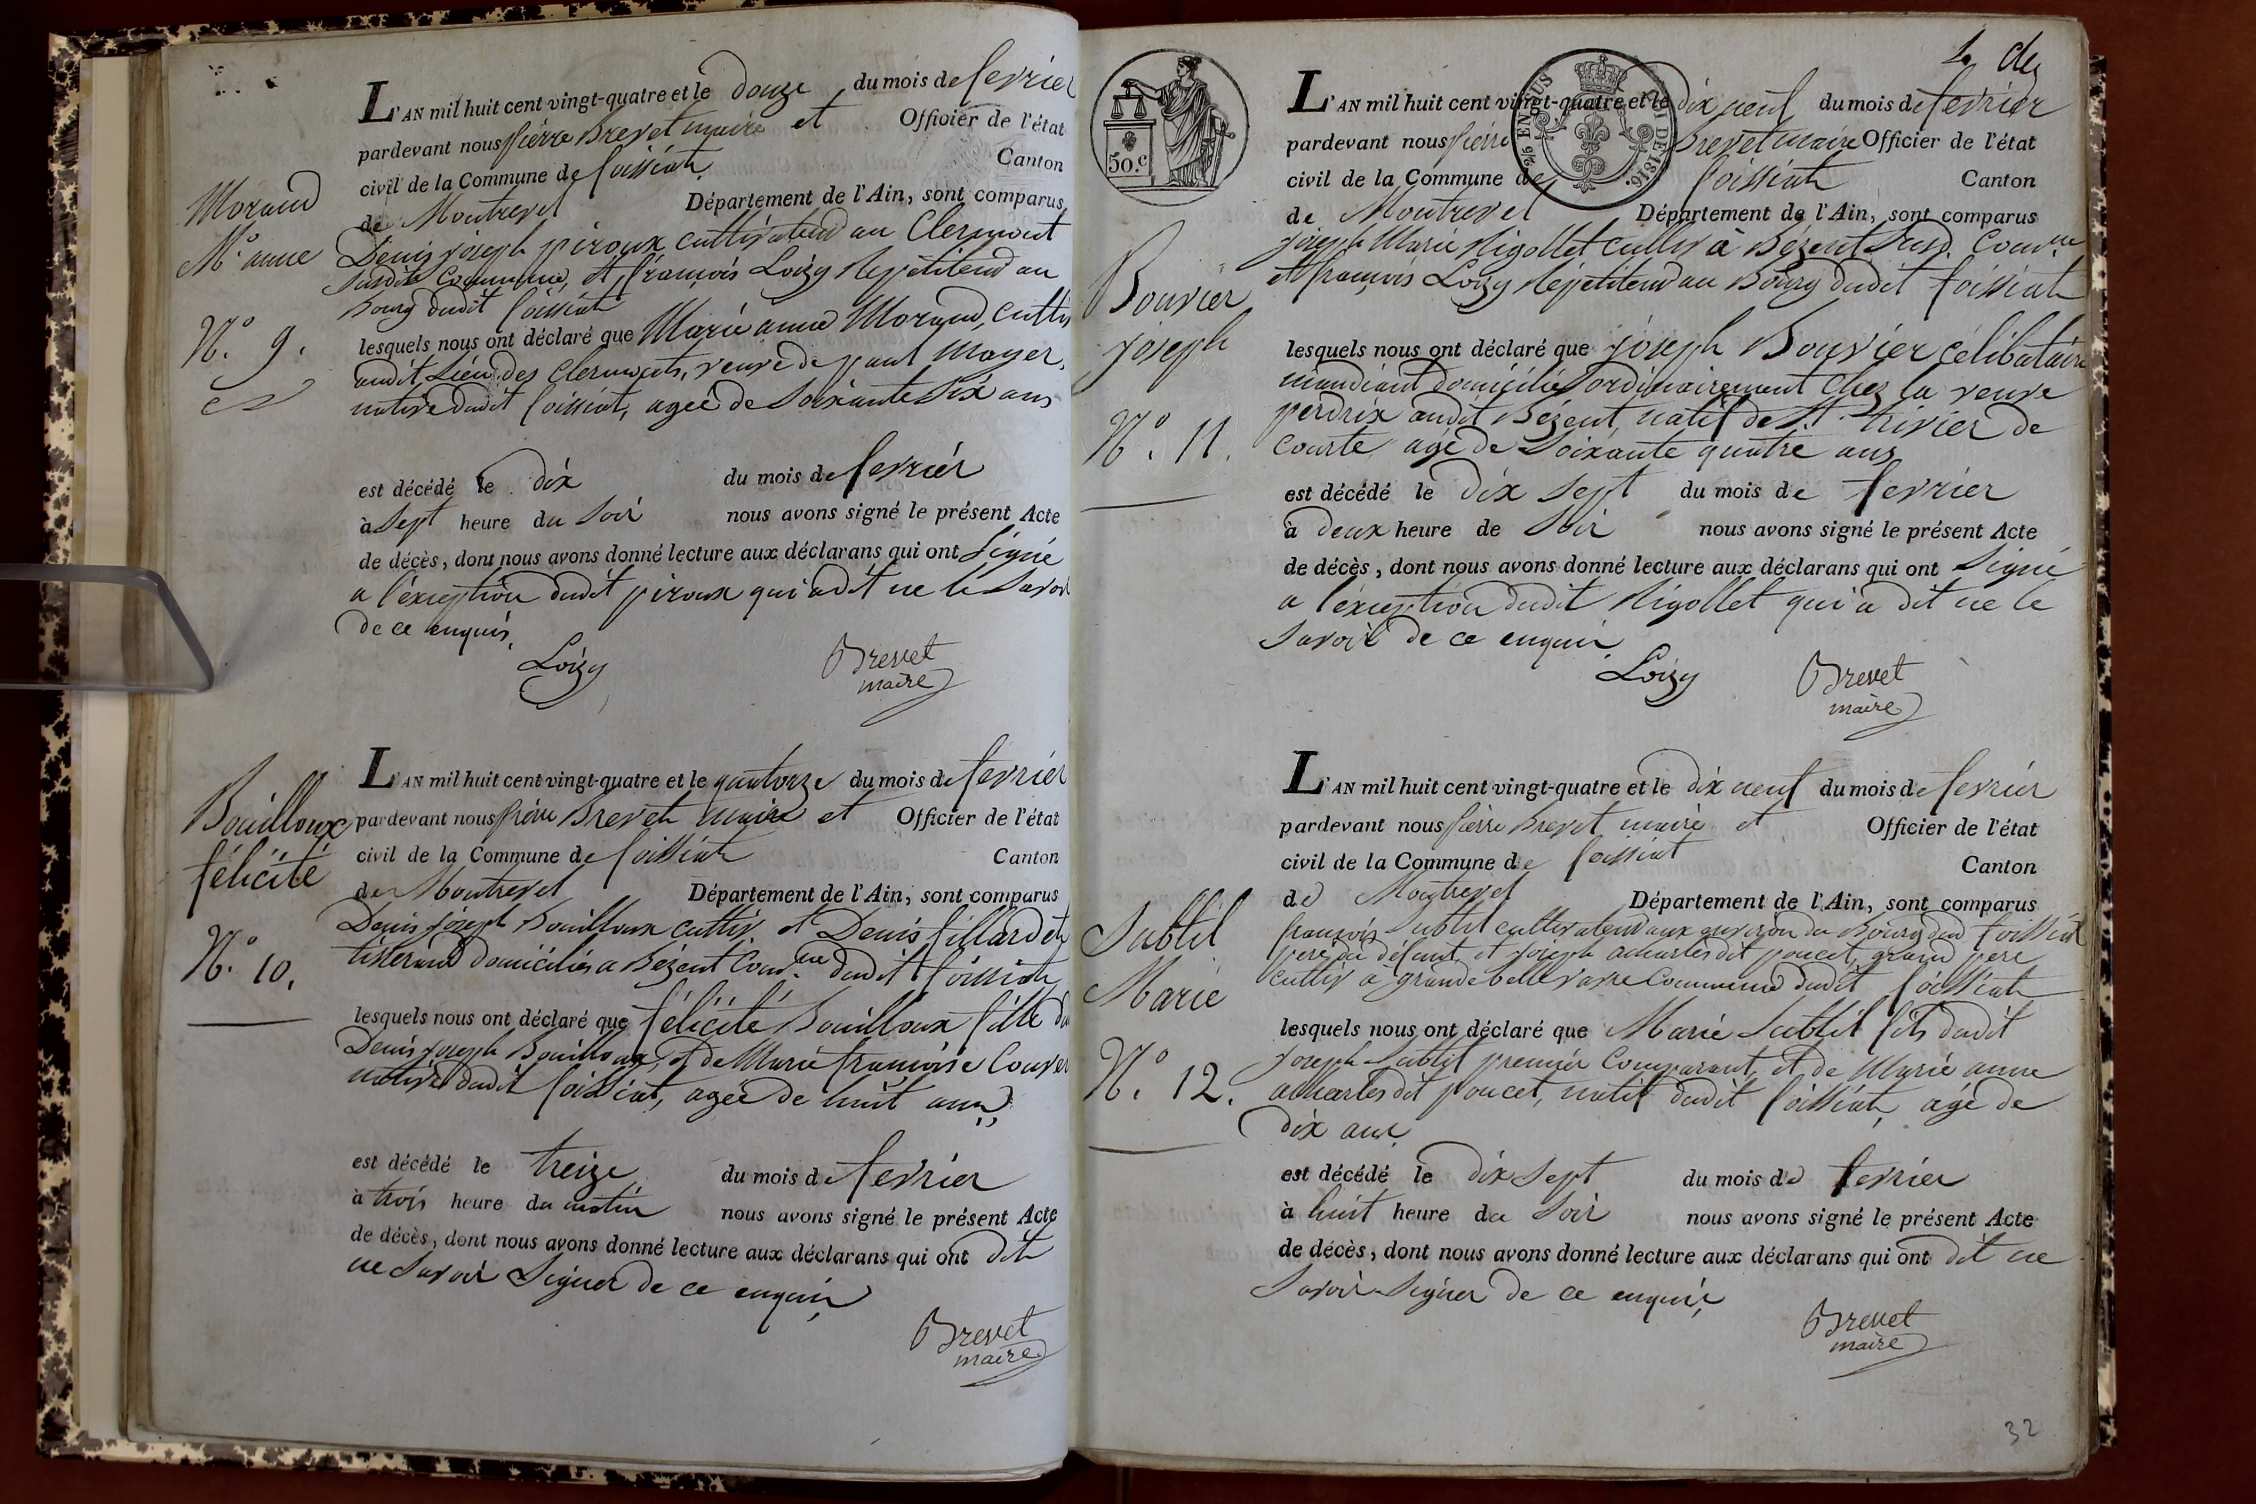 L'AN mil huit cent vingt-quatre et le douze du mois de fevrier
pardevant nous pierre Brevet maire et Officier de l'état
civil de la Commune de foissiat Canton
de Montrevel Département de l'Ain, sont comparus
Denis joseph piroux cultivateur au Clermont
susdite Commune, et françois Loizy Repetiteur au
Bourg dudit foissiat
lesquels nous ont déclaré que Marie anne Morand, cultiv
audit Lieu des Clermonts, veuve de paul Moyer,
native dudit foissiat, agée de Soixante Six ans
est décédé le dix du mois de fevrier
à Sept heure du Soir nous avons signé le présent Acte
de décès, dont nous avons donné lecture aux déclarans qui ont Signé
a l'exception dudit piroux qui a dit ne le Savoir
de ce enquis.
Loizy Brevet
maire
Morand
Mie anne
N.° 9.
L'AN mil huit cent vingt-quatre et le quatorze du mois de fevrier
pardevant nous pierre Brevet maire et Officier de l'état
civil de la Commune de foissiat Canton
de Montrevel Département de l'Ain, sont comparus
Denis joseph Bouilloux cultiv et Denis fillardet
tisserand domiciliés a Bézent Comune dudit foissiat
lesquels nous ont déclaré que félicité Bouilloux fille du
Denis joseph Bouilloux, et de Marie françoise Couver
native dudit foissiat, agée de huit ans
est décédé le treize du mois de fevrier
à trois heure du matin nous avons signé le présent Acte
de décès, dont nous avons donné lecture aux déclarans qui ont dit
ne Savoir Signer de ce enquis
Brevet
maire
Bouilloux
félicité
N.° 10.
50.c
L'AN mil huit cent vingt-quatre et le dix neuf du mois de fevrier
pardevant nous pierre Brevet maire Officier de l'état
civil de la Commune de foissiat Canton
de Montrevel Département de l'Ain, sont comparus
joseph Marie Rigollet cultiv à Bézent Susd. Comune
et françois Loizy Repetiteur au Bourg dudit foissiat
lesquels nous ont déclaré que joseph Bouvier célibataire
mandiant domicilié ordinairement Chez la veuve
perdrix audit Bézent, natif de St. trivier de
Courte agé de Soixante quatre ans
est décédé le dix Sept du mois de fevrier
à deux heure de Soir nous avons signé le présent Acte
de décès, dont nous avons donné lecture aux déclarans qui ont Signé
a l'exception dudit Rigollet qui a dit ne le
Savoir de ce enquis
Loizy Brevet
maire
Bouvier
joseph
N.° 11.
L'AN mil huit cent vingt-quatre et le dix neuf du mois de fevrier
pardevant nous pierre Brevet maire et Officier de l'état
civil de la Commune de foissiat Canton
de Montrevel Département de l'Ain, sont comparus
françois Subtil cultivateur aux environ du Bourg dud foissiat
pere du défunt, et joseph dit poucet, grand pere
cultiv a grande Commune dudit foissiat
lesquels nous ont déclaré que Marie Subtil fils dudit
joseph Subtil premier Comparant, et de Marie anne
dit poucet, natif dudit foissiat, agé de
dix ans
est décédé le dix Sept du mois de fevrier
à huit heure du Soir nous avons signé le présent Acte
de décès, dont nous avons donné lecture aux déclarans qui ont dit ne
Savoir Signer de ce enquis
Brevet
maire
Subtil
Marie
N.° 12.
32